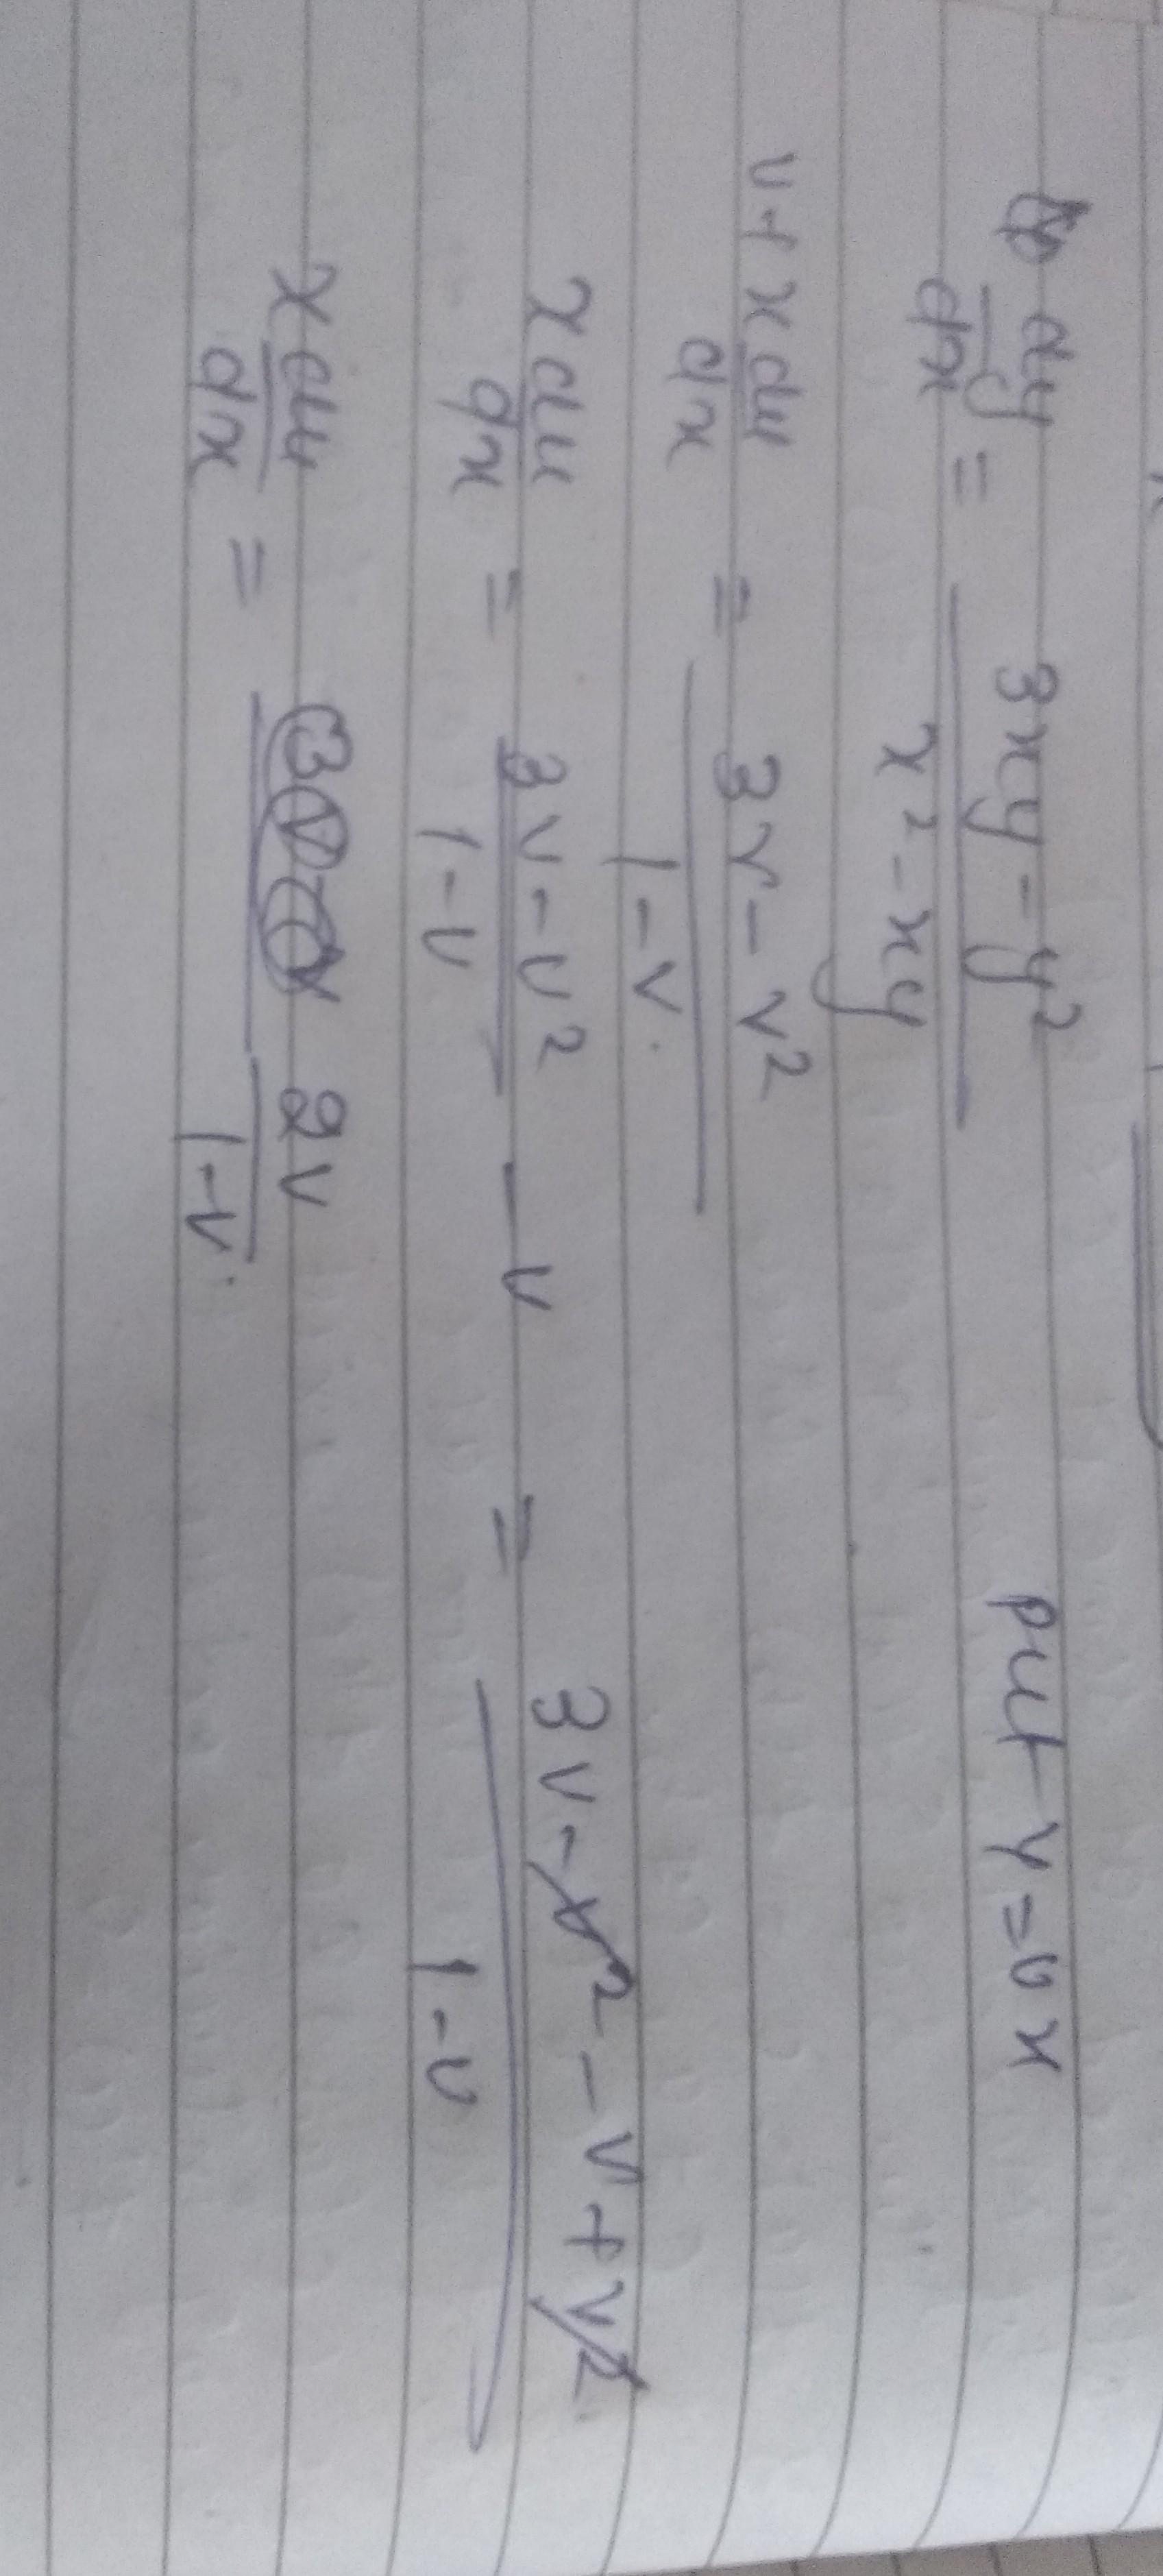 dy/dx = (3xy - y²)/(x² - xy) put y = vx
v + x dv/dx = (3v - v²)/(1 - v)
x dv/dx = (3v - v²)/(1 - v) - v = (3v - v² - v + v²)/(1 - v)
x dv/dx = 2v/(1 - v)